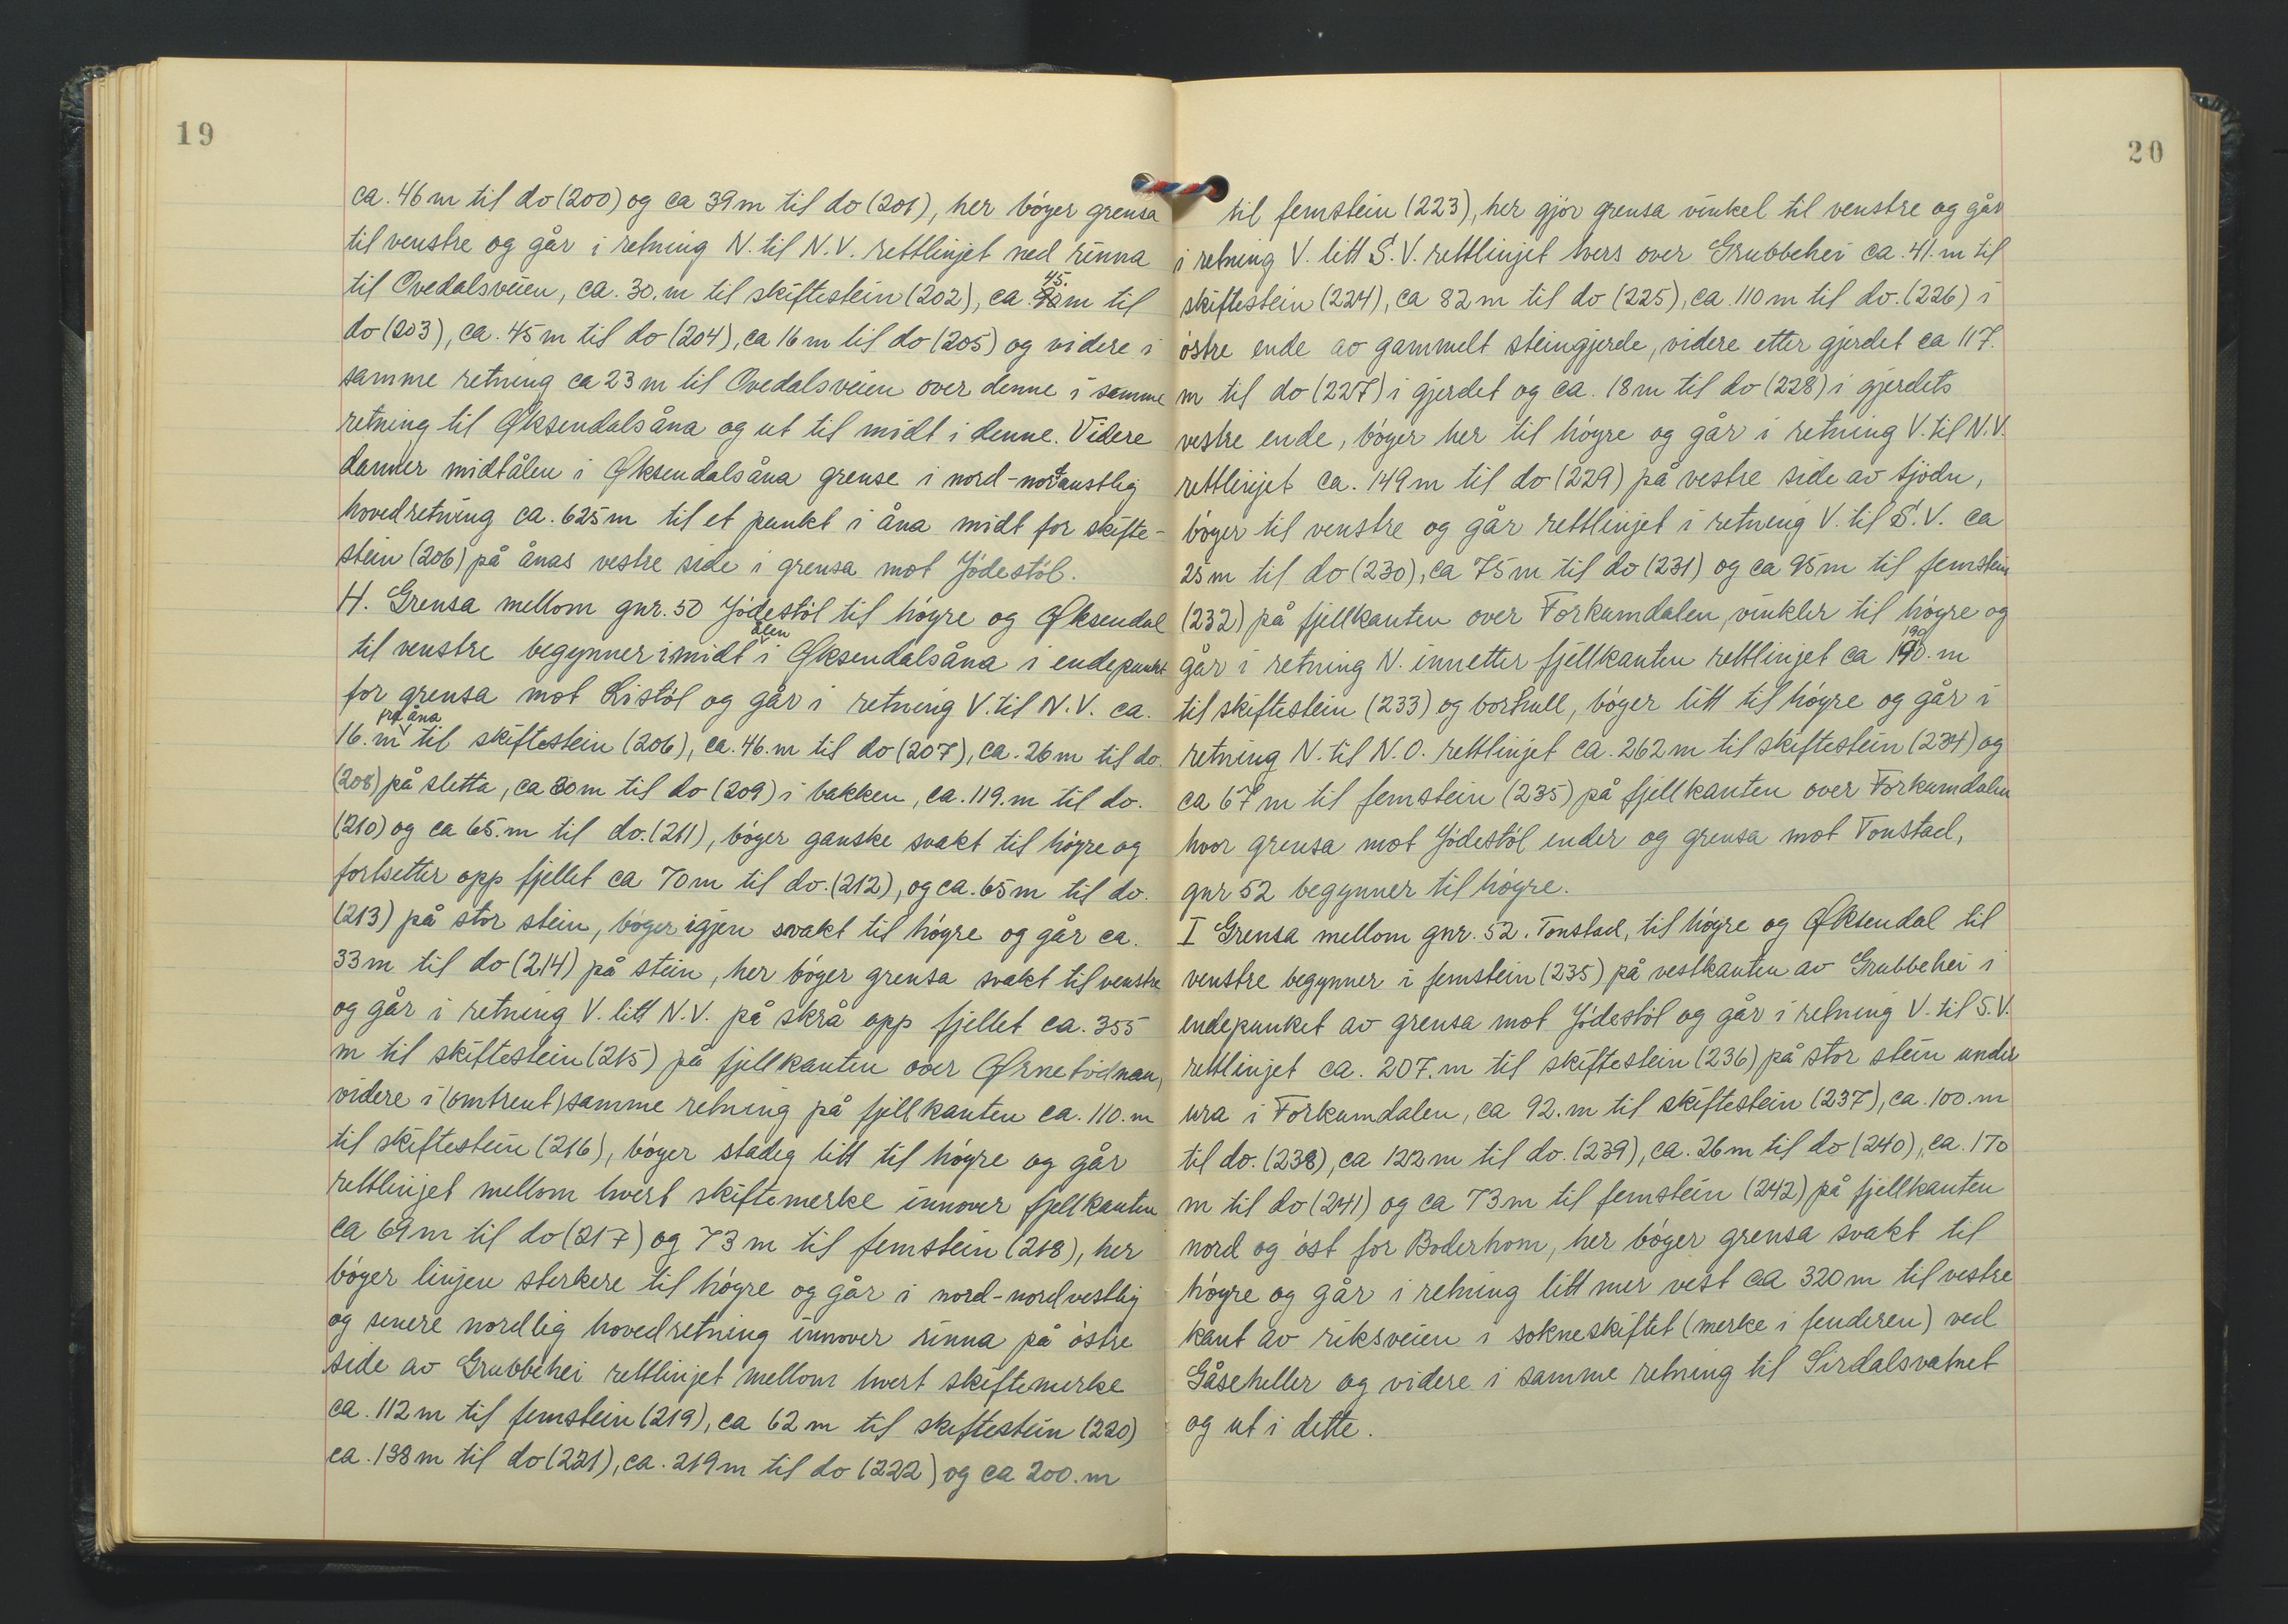 19
ca. 46 m til do (200) og ca 39 m til do (201), her bóyer grensa
til venstre og går i retning N. til N.V. rettlinjet ned rinna
til Ovedalsveien, ca. 30. m til skiftestein (202), ca. 45. m til
do (203), ca. 45 m til do (204), ca 16 m til do (205) og videre i
samme retning ca 23 m til Ovedalsveien over denne i samme
retning til Øksendalsåna og ut til midt i denne. Videre
danner midtålen i Øksendalsåna grense i nord-nordaustlig
hovedretning ca. 625 m til et punkt i åna midt for skifte-
stein (206) på ånas vestre side i grensa mot Jódestól.
H. Grensa mellom gnr. 50 Jódestól til hóyre og Øksendal
til venstre begynner i midtålen i Øksendalsåna i endepunkt
for grensa mot Listól og går i retning V. til N.V. ca.
16. m frå åna til skiftestein (206), ca. 46. m til do (207), ca. 26 m til do.
(208) på sletta, ca 30 m til do (209) i bakken, ca. 119. m til do.
(210) og ca 65. m til do. (211), bóyer ganske svakt til hóyre og
fortsetter opp fjellet ca 70 m til do. (212), og ca. 65 m til do.
(213) på stor stein, bóyer igjen svakt til hóyre og går ca.
33 m til do (214) på stein, her bóyer grensa svakt til venstre
og går i retning V. litt N.V. på skrå opp fjellet ca. 355
m til skiftestein (215) på fjellkanten over Ørnetvidnan,
videre i (omtrent) samme retning på fjellkanten ca. 110. m
til skiftestein (216), bóyer stadig litt til hóyre og går
rettlinjet mellom hvert skiftemerke innover fjellkanten
ca 69 m til do (217) og 73 m til femstein (218), her
bóyer linjen sterkere til hóyre og går i nord-nordvestlig
og senere nordlig hovedretning innover rinna på óstre
side av Grubbehei rettlinjet mellom hvert skiftemerke
ca. 112 m til femstein (219), ca 62 m til skiftestein (220)
ca. 138 m til do (221), ca. 219 m til do (222) og ca 200. m
20
til femstein (223), her gjór grensa vinkel til venstre og går
i retning V. litt S.V. rettlinjet tvers over Grubbehei ca. 41. m til
skiftestein (224), ca 82 m til do (225), ca. 110 m til do. (226) i
óstre ende av gammelt steingjerde, videre etter gjerdet ca 117.
m til do (227) i gjerdet og ca. 18 m til do (228) i gjerdets
vestre ende, bóyer her til hóyre og går i retning V. til N.V.
rettlinjet ca. 149 m til do (229) på vestre side av tjódn,
bóyer til venstre og går rettlinjet i retning V. til S.V. ca
25 m til do (230), ca 75 m til do (231) og ca 95 m til femstein
(232) på fjellkanten over Forkumdalen, vinkler til hóyre og
går i retning N. innetter fjellkanten rettlinjet ca 190. m
til skiftestein (233) og borhull, bóyer litt til hóyre og går i
retning N. til N.O. rettlinjet ca. 262 m til skiftestein (234) og
ca 67 m til femstein (235) på fjellkanten over Forkumdalen
hvor grensa mot Jódestól ender og grensa mot Tonstad,
gnr 52 begynner til hóyre.
I Grensa mellom gnr. 52. Tonstad, til hóyre og Øksendal til
venstre begynner i femstein (235) på vestkanten av Grubbehei i
endepunket av grensa mot Jódestól og går i retning V. til S.V.
rettlinjet ca. 207. m til skiftestein (236) på stor stein under
ura i Forkumdalen, ca 92. m til skiftestein (237), ca. 100. m
til do. (238), ca 122 m til do. (239), ca. 26 m til do (240), ca. 170
m til do (241) og ca 73 m til femstein (242) på fjellkanten
nord og óst for Boderhom, her bóyer grensa svakt til
hóyre og går i retning litt mer vest ca 320 m til vestre
kant av riksveien i sokneskiftet (merke i fenderen) ved
Gåseheller og videre i samme retning til Sirdalsvatnet
og ut i dette.